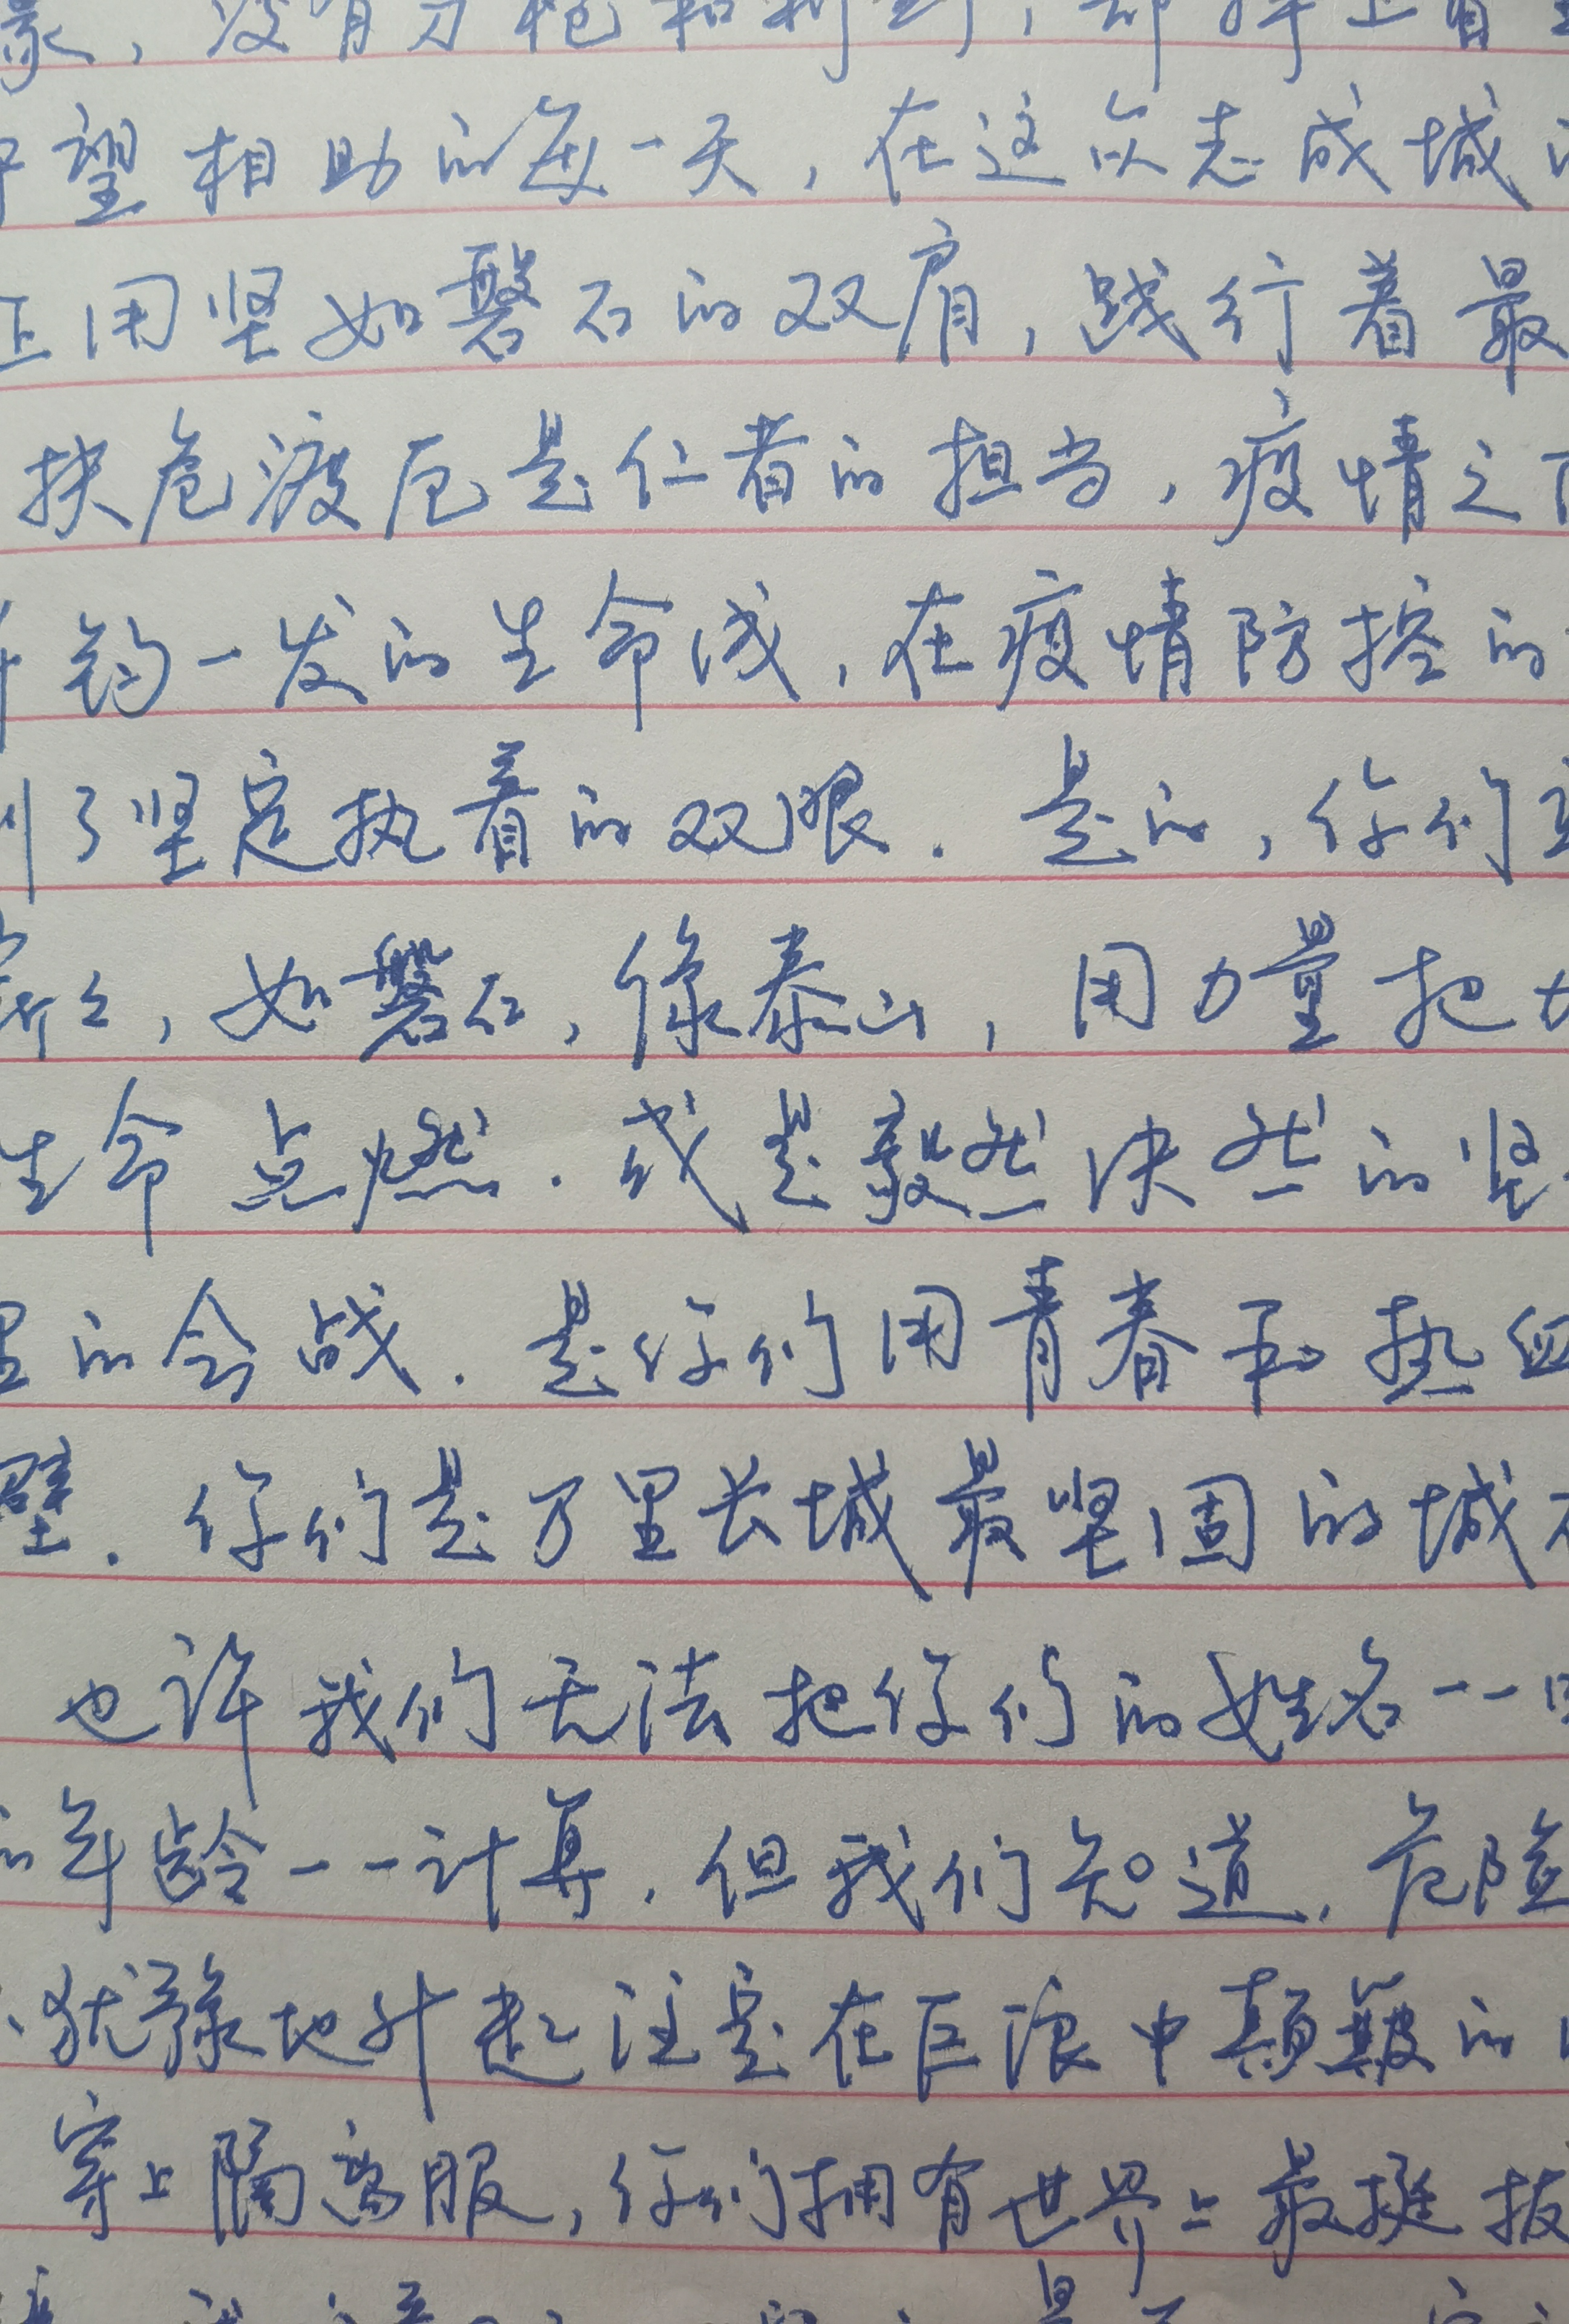 没有刀枪和利剑，却
望相助的每一天，在这众志成城
用坚如磐石的双肩，践行着最
扶危渡厄是仁者的担当，疫情之
钧一发的生命线，在疫情防控的
了坚定执着的双眼．是的，你们
，如磐石，像泰山，用力量把
生命点燃．或是毅然决然的坚
里的会战．是你们用青春和热血
壁．你们是万里长城最坚固的城
也许我们无法把你们的姓名一一
的年龄一一计算．但我们知道．危险
犹豫地升起注定在巨浪中颠簸的
穿上隔离服，你们拥有世界上最挺拔